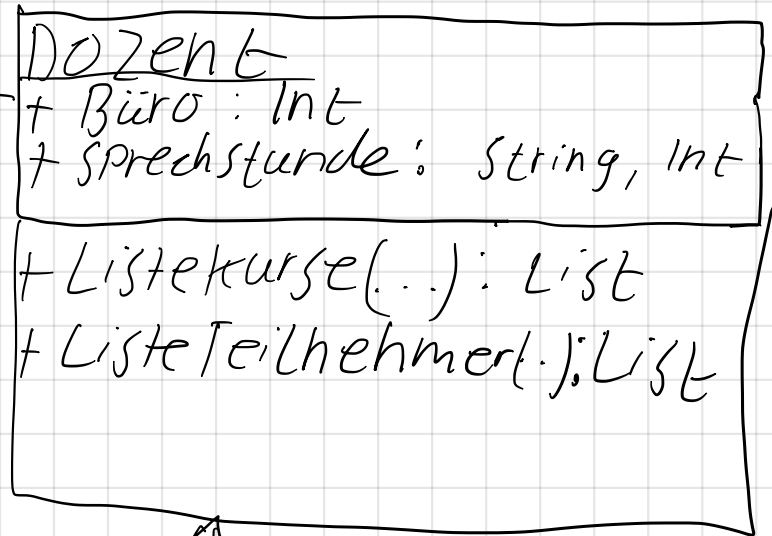 Dozent
+ Büro : Int
+ Sprechstunde : String, Int
+ ListeKurse(...) : List
+ ListeTeilnehmer(.) : List